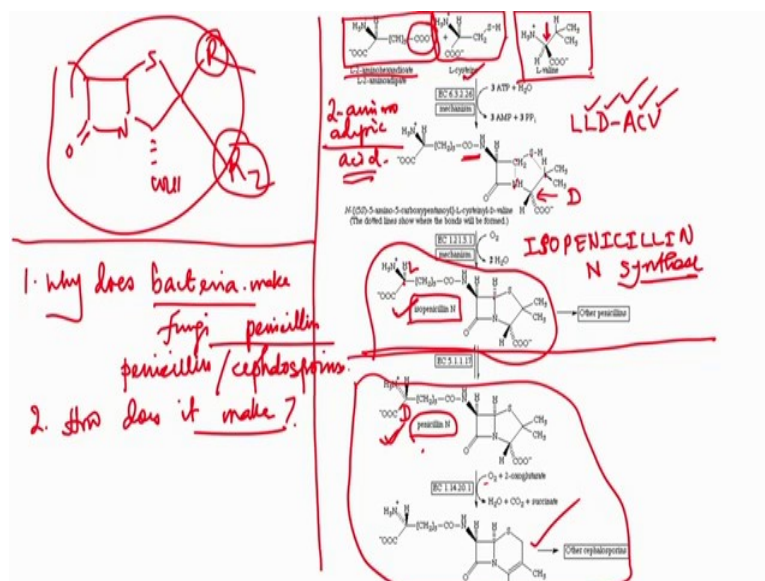 S
R
N
O
R2
COOH
1. Why does bacteria make
fungi penicillin
penicillin/cephalosporins.
2. How does it make?
H₃N⁺ H
(CH₂)₃ COO⁻
⁻OOC
+
H₃N⁺ H S-H
CH₂
⁻OOC
H₃N⁺ H CH₃
CH₃
COO⁻
L-2-aminohexadioate
L-2-aminoadipate
L-cysteine
L-valine
EC 6.3.2.26
mechanism
3 ATP + H₂O
3 AMP + 3 PPi
2-amino
adipic
acid.
LLD-ACV
H₃N⁺ H
⁻OOC (CH₂)₃-CO-N
CH₃
CH₃
COO⁻
D
N-[(5S)-5-amino-5-carboxypentanoyl]-L-cysteinyl-D-valine
(The dotted lines show where the bonds will be formed.)
EC 1.21.3.1
mechanism
O₂
2 H₂O
ISOPENICILLIN
N synthase
H₃N⁺ H L
⁻OOC (CH₂)₃-CO-N
isopenicillin N
S CH₃
CH₃
O N
H COO⁻
Other penicillins
EC 5.1.1.17
H₃N⁺ H
⁻OOC D (CH₂)₃-CO-N
penicillin N
S CH₃
CH₃
O N
H COO⁻
EC 1.14.20.1
O₂ + 2-oxoglutarate
H₂O + CO₂ + succinate
H₃N⁺ H
⁻OOC (CH₂)₃-CO-N
S
O N CH₃
Other cephalosporins